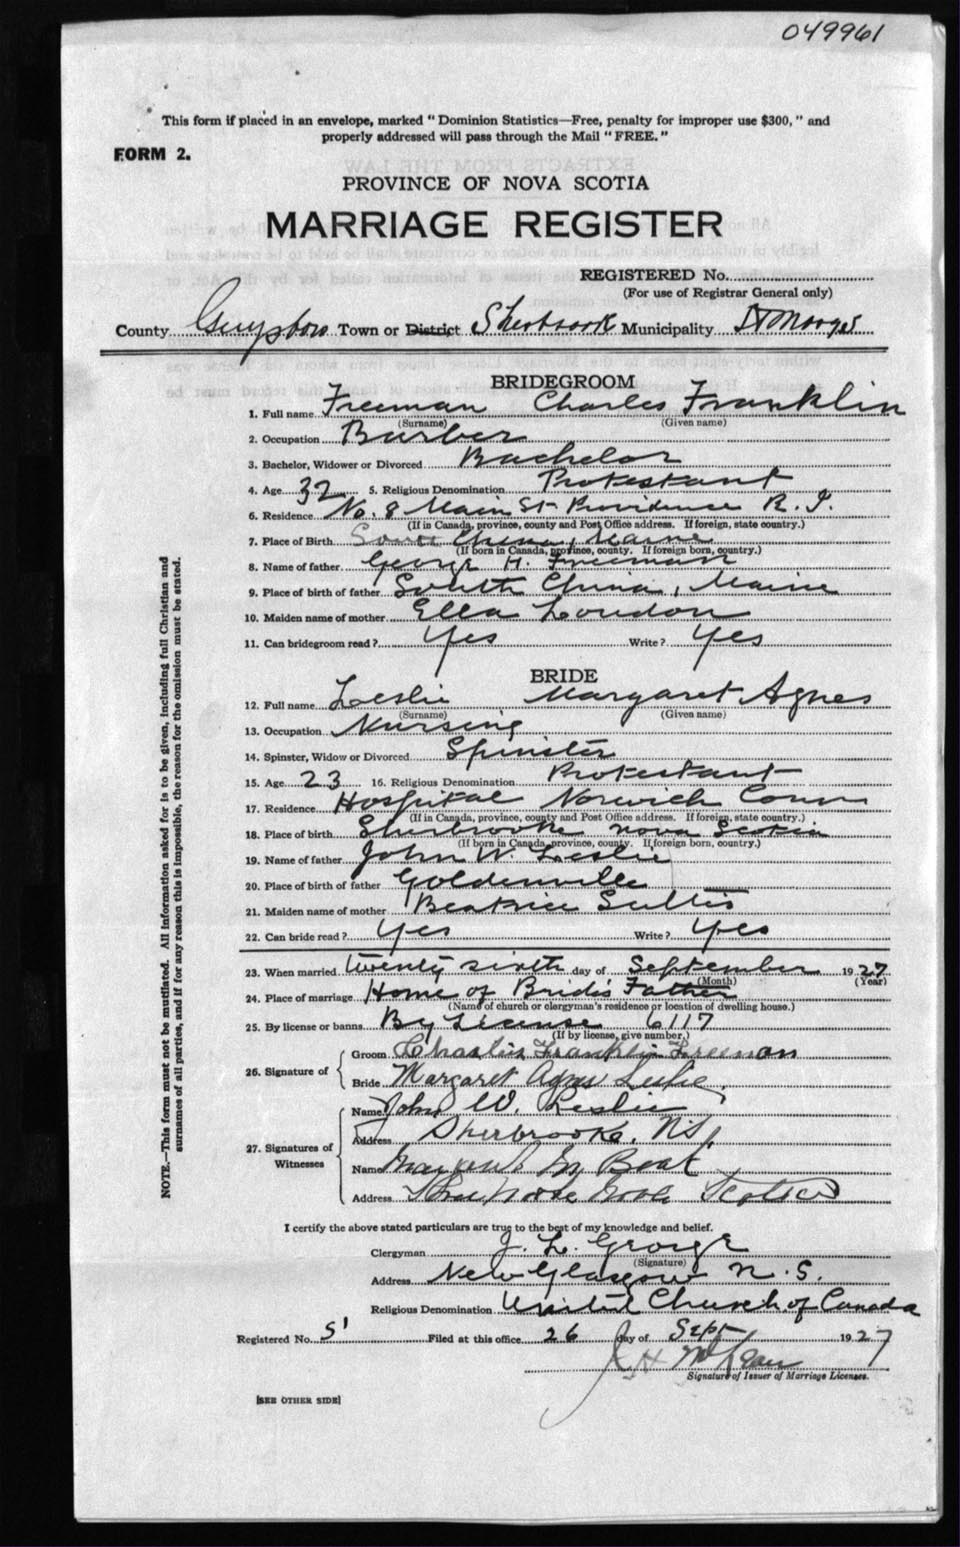 049961
This form if placed in an envelope, marked "Dominion Statistics—Free, penalty for improper use $300," and
properly addressed will pass through the Mail "FREE."
FORM 2.
PROVINCE OF NOVA SCOTIA
MARRIAGE REGISTER
REGISTERED No.
(For use of Registrar General only)
County Guysboro Town or District Sherbrook Municipality St Marys
BRIDEGROOM
1. Full name Freeman Charles Franklin
(Surname) (Given name)
2. Occupation Barber
3. Bachelor, Widower or Divorced Bachelor
4. Age 32 5. Religious Denomination Protestant
6. Residence No. 8 Main St Providence R. I.
(If in Canada, province, county and Post Office address. If foreign, state country.)
7. Place of Birth South China, Maine
(If born in Canada, province, county. If foreign born, country.)
8. Name of father George H. Freeman
9. Place of birth of father South China, Maine
10. Maiden name of mother Ella Loudon
11. Can bridegroom read? Yes Write? Yes
BRIDE
12. Full name Leslie Margaret Agnes
(Surname) (Given name)
13. Occupation Nursing
14. Spinster, Widow or Divorced Spinster
15. Age 23 16. Religious Denomination Protestant
17. Residence Hospital Norwich Conn
(If in Canada, province, county and Post Office address. If foreign, state country.)
18. Place of birth Sherbrooke Nova Scotia
(If born in Canada, province, county. If foreign born, country.)
19. Name of father John W. Leslie
20. Place of birth of father Goldenville
21. Maiden name of mother Beatrice Sultis
22. Can bride read? Yes Write? Yes
23. When married twenty sixth day of September 1927
(Month) (Year)
24. Place of marriage Home of Brides Father
(Name of church or clergyman's residence or location of dwelling house.)
25. By license or banns By License 6117
(If by license, give number.)
26. Signature of
Groom Charles Franklin Freeman
Bride Margaret Agnes Leslie
27. Signatures of Witnesses
Name John W. Leslie
Address Sherbrooke, N.S.
Name
Address
I certify the above stated particulars are true to the best of my knowledge and belief.
Clergyman J. L. George
(Signature)
Address New Glasgow N.S.
Religious Denomination United Church of Canada
Registered No. 51 Filed at this office 26 day of Sept 1927
Signature of Issuer of Marriage Licenses.
[SEE OTHER SIDE]
NOTE.—This form must not be mutilated. All information asked for is to be given, including full Christian and
surnames of all parties, and if for any reason this is impossible, the reason for the omission must be stated.